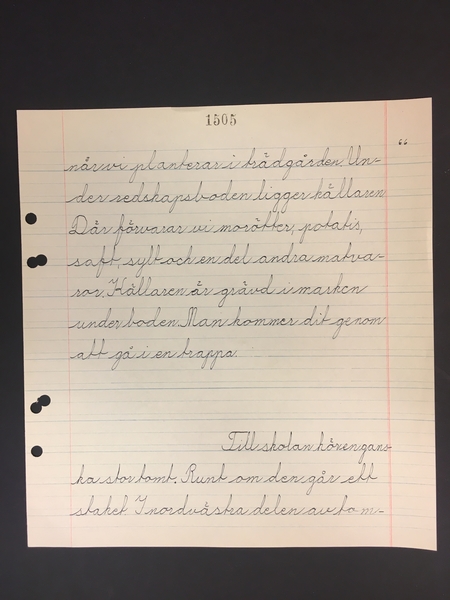 1505
66
när vi planterar i trädgården. Un-
der redskapsboden ligger källaren
Där förvarar vi morötter, potatis,
saft, sylt och en del andra matva-
ror. Källaren är grävd i marken
under boden. Man kommer dit genom
att gå i en trappa.
Till skolan hör en gans-
ka stor tomt. Runt om den går ett
staket I nordvästra delen av tom-